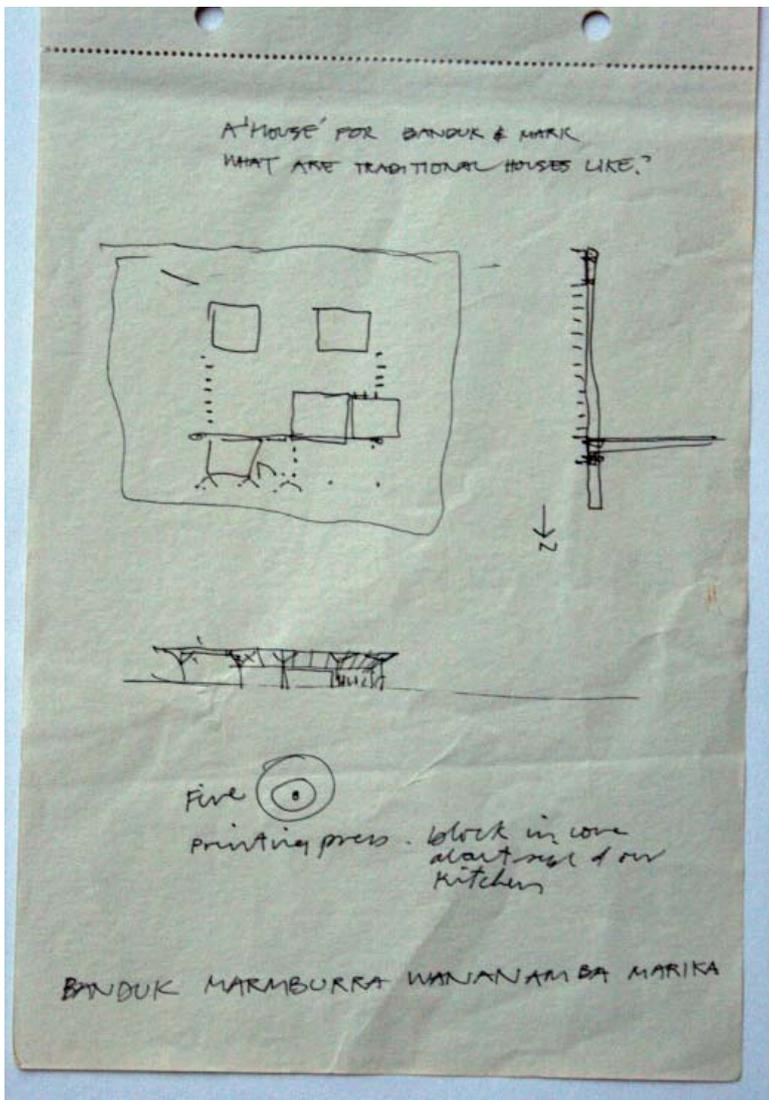 A 'HOUSE' FOR BANDUK & MARK
WHAT ARE TRADITIONAL HOUSES LIKE?
N
Fire
Printing press. block in
about size of our
Kitchen
BANDUK MARMBURRA WANANAMBA MARIKA